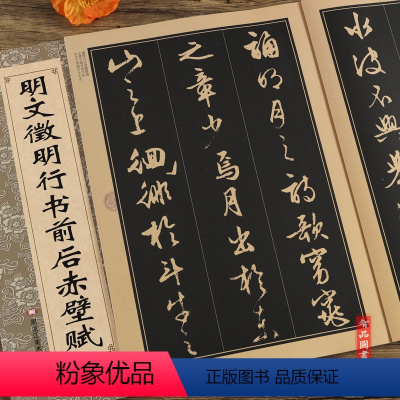 水波不興舉
誦明月之詩歌窈窕
之章少焉月出於東
山之上徊徘於斗牛之
明文徵明行书前后赤壁赋
粉象优品